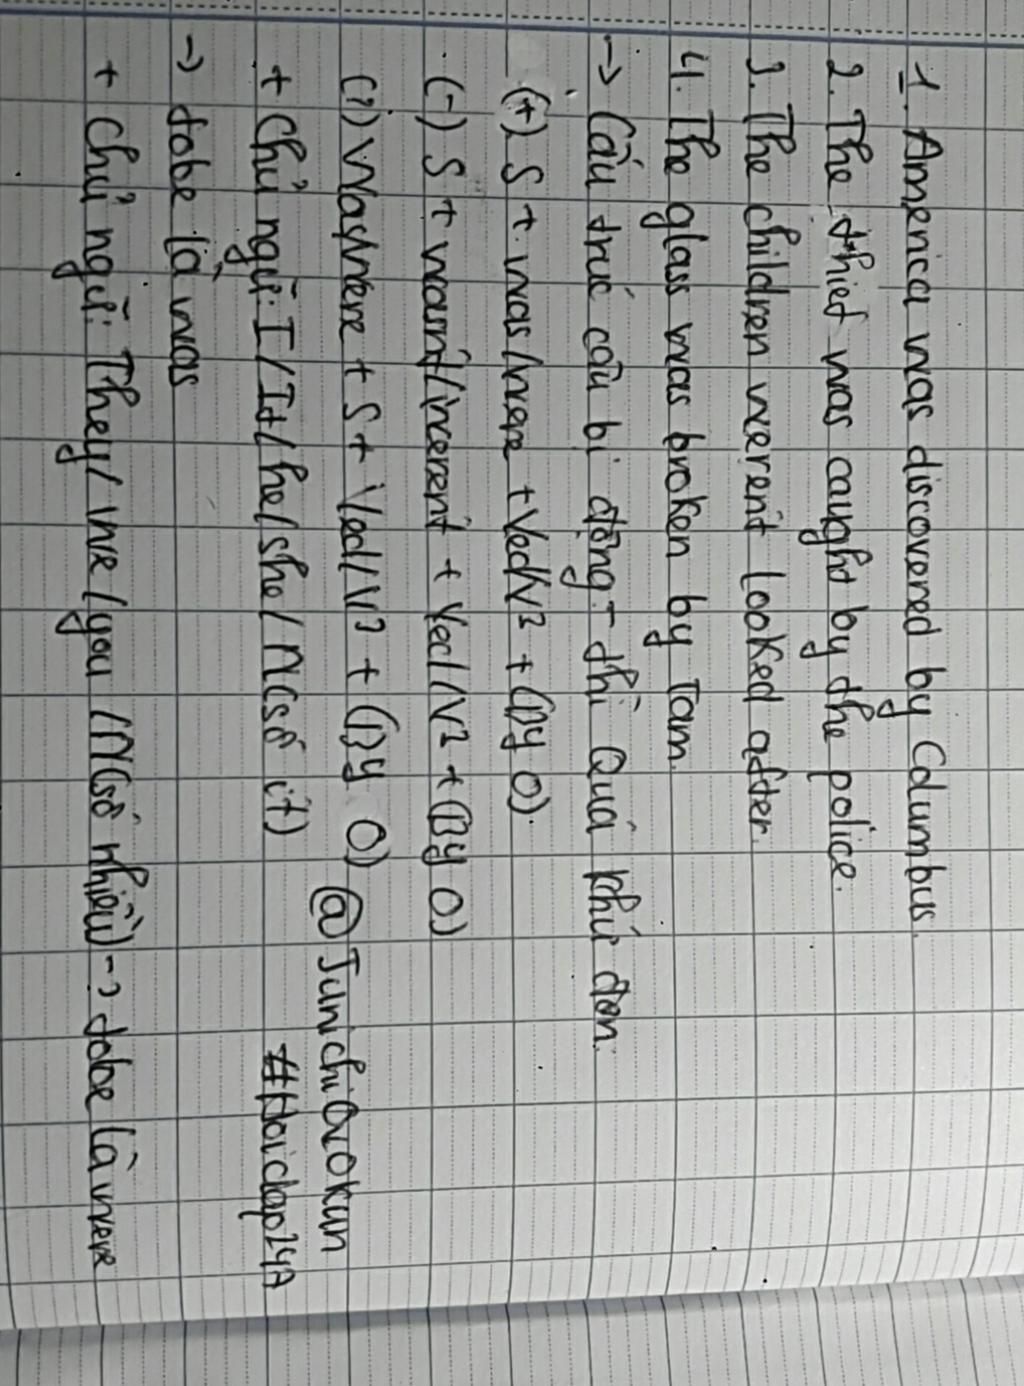 1. America was discovered by Columbus.
2. The thief was caught by the police.
3. The children weren't looked after.
4. The glass was broken by Tam.
→ Cấu trúc câu bị động - thì Quá khứ đơn.
(+) S + was/were + Ved/V3 + (By O).
(-) S + wasn't/weren't + Ved/V3 + (By O)
(?) Was/were + S + Ved/V3 + (By O) @Junichi
+ Chủ ngữ: I/It/he/she/N(số ít) #Hoidap247
→ tobe là was
+ Chủ ngữ: They/we/you/N(số nhiều) → tobe là were